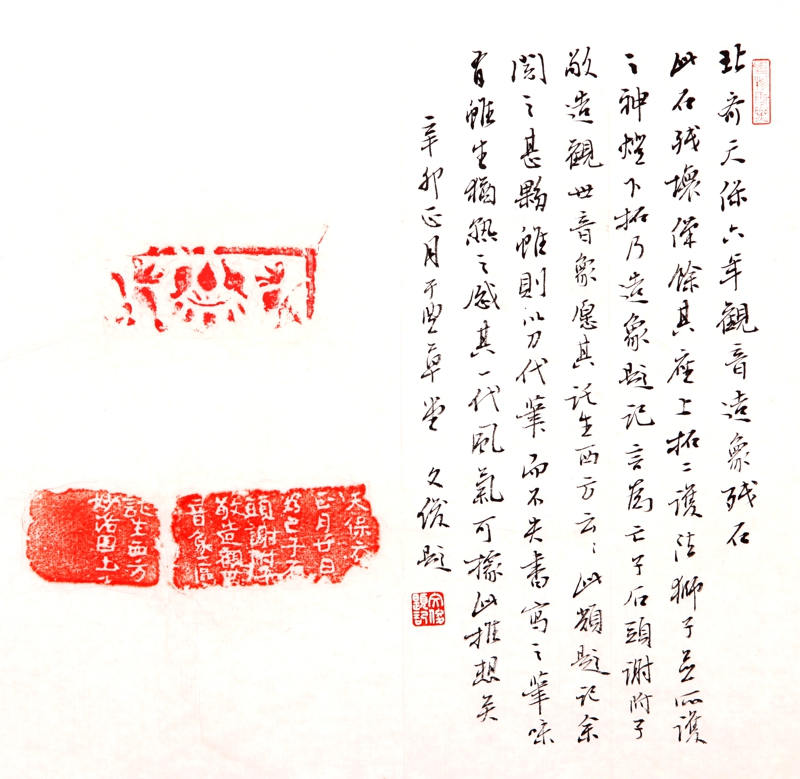 北齐天保六年觀音造象残石
此石残壞僅餘其座上拓二護法獅子并所護
之神燈下拓乃造象題記言為亡子石頭謝附子
敬造觀世音象愿其託生西方云云此類題記余
閲之甚夥雖則以刀代筆而不失書寫之筆味
有雖生猶熟之感其一代風氣可據此推想矣
辛卯正月于豐草堂 文俊題
文俊題記
天保六
正月廿日
為亡子石
頭謝附子
敬造觀世
音象區
託生西方
妙洛国土